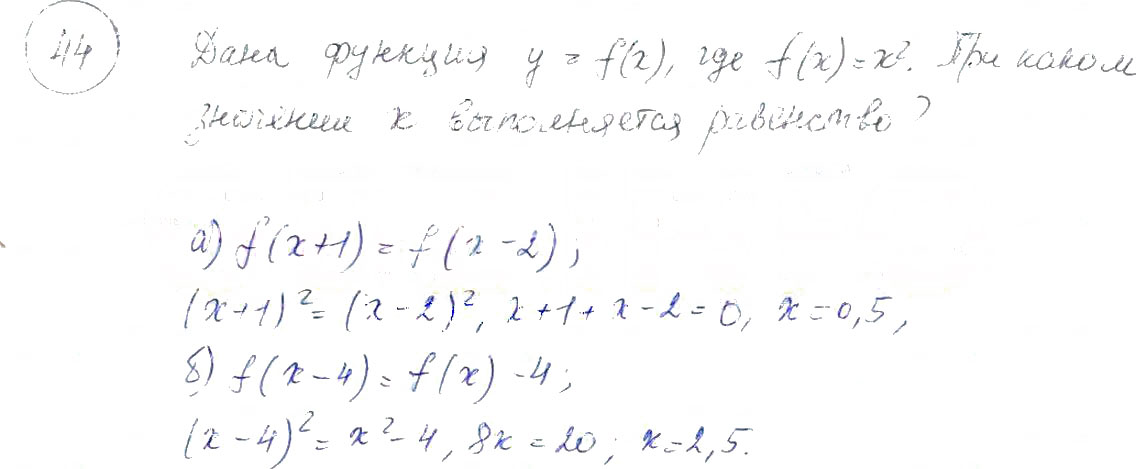 44 Дана функция y = f(x), где f(x) = x². При каком
значении x выполняется равенство?
а) f(x+1) = f(x-2);
(x+1)² = (x-2)², x+1+x-2=0, x=0,5,
б) f(x-4) = f(x) -4;
(x-4)² = x²-4, 8x=20; x=2,5.